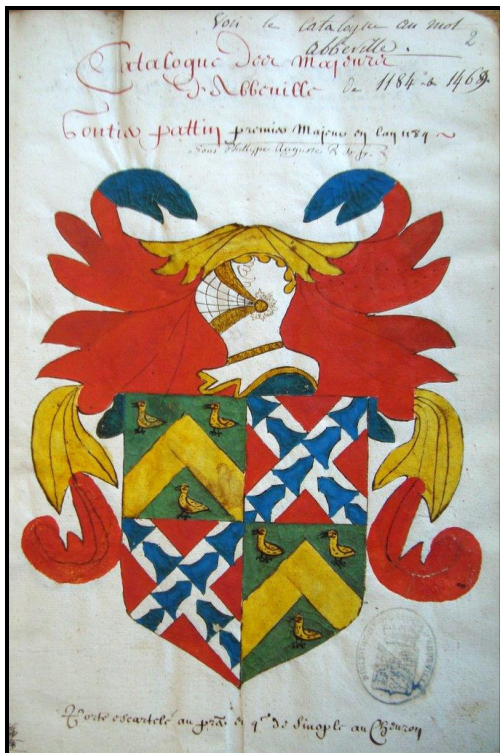 Voir le catalogue au mot
abbeville.
2
Catalogue des Majeurs
d'Abbeville de 1184 a 1469
Gontier pattin premier Majeur en lan 1184
Sous Philippe Auguste R de fr.
Porte escartelé au pr̃. et 4e. de Sinople au Cheuron